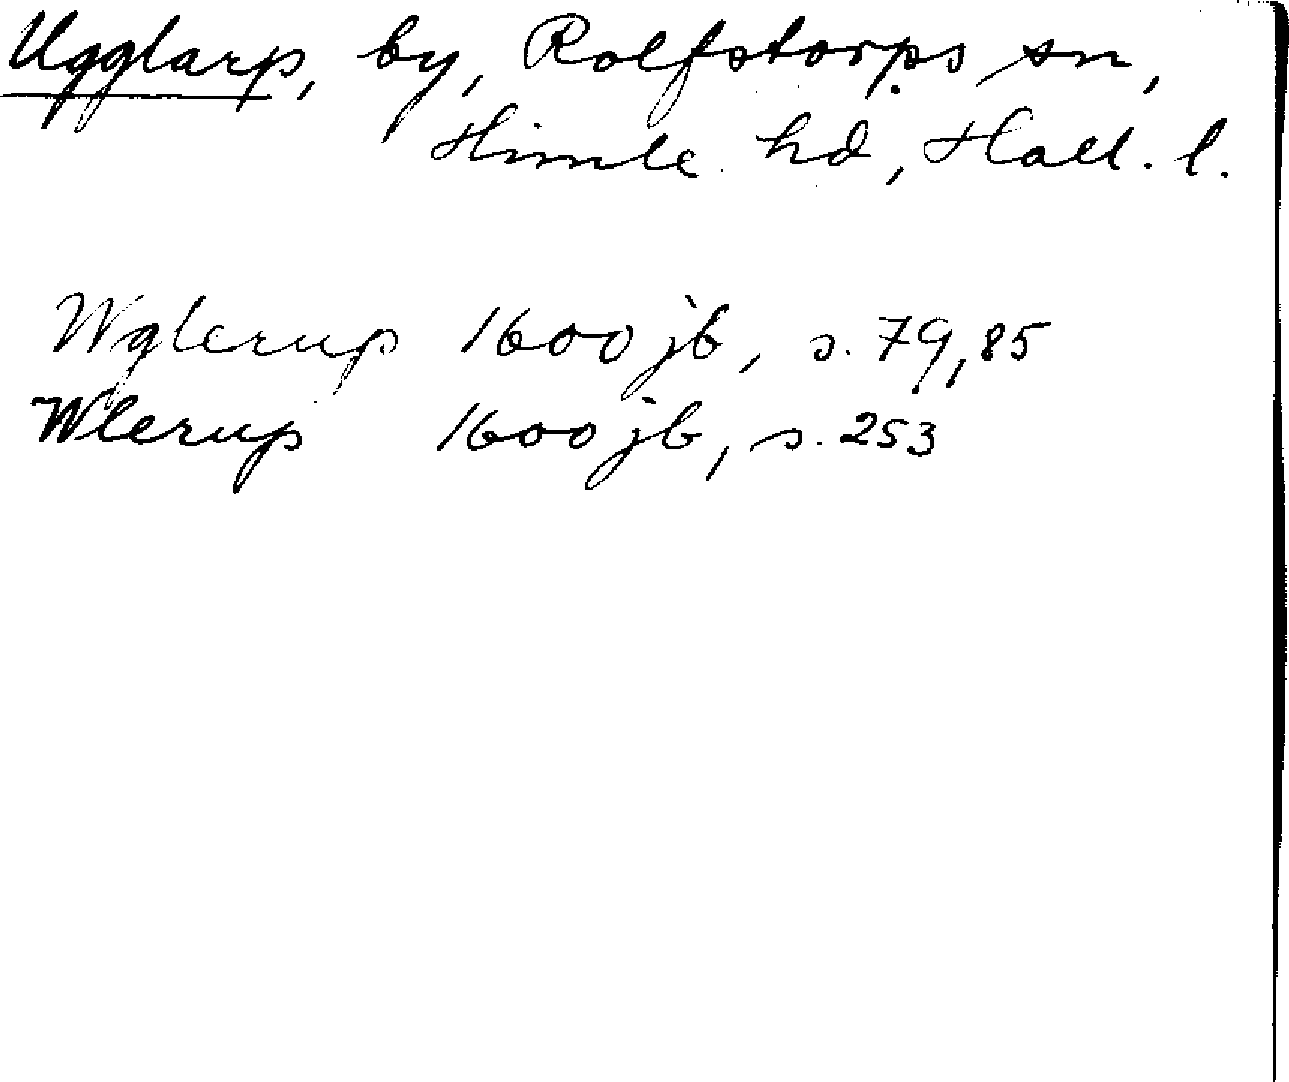 Ugglarp, by, Rolfstorps sn,
Himle hd, Hall. l.
Wglerup 1600 jb, s. 79, 85
Wlerup 1600 jb, s. 253